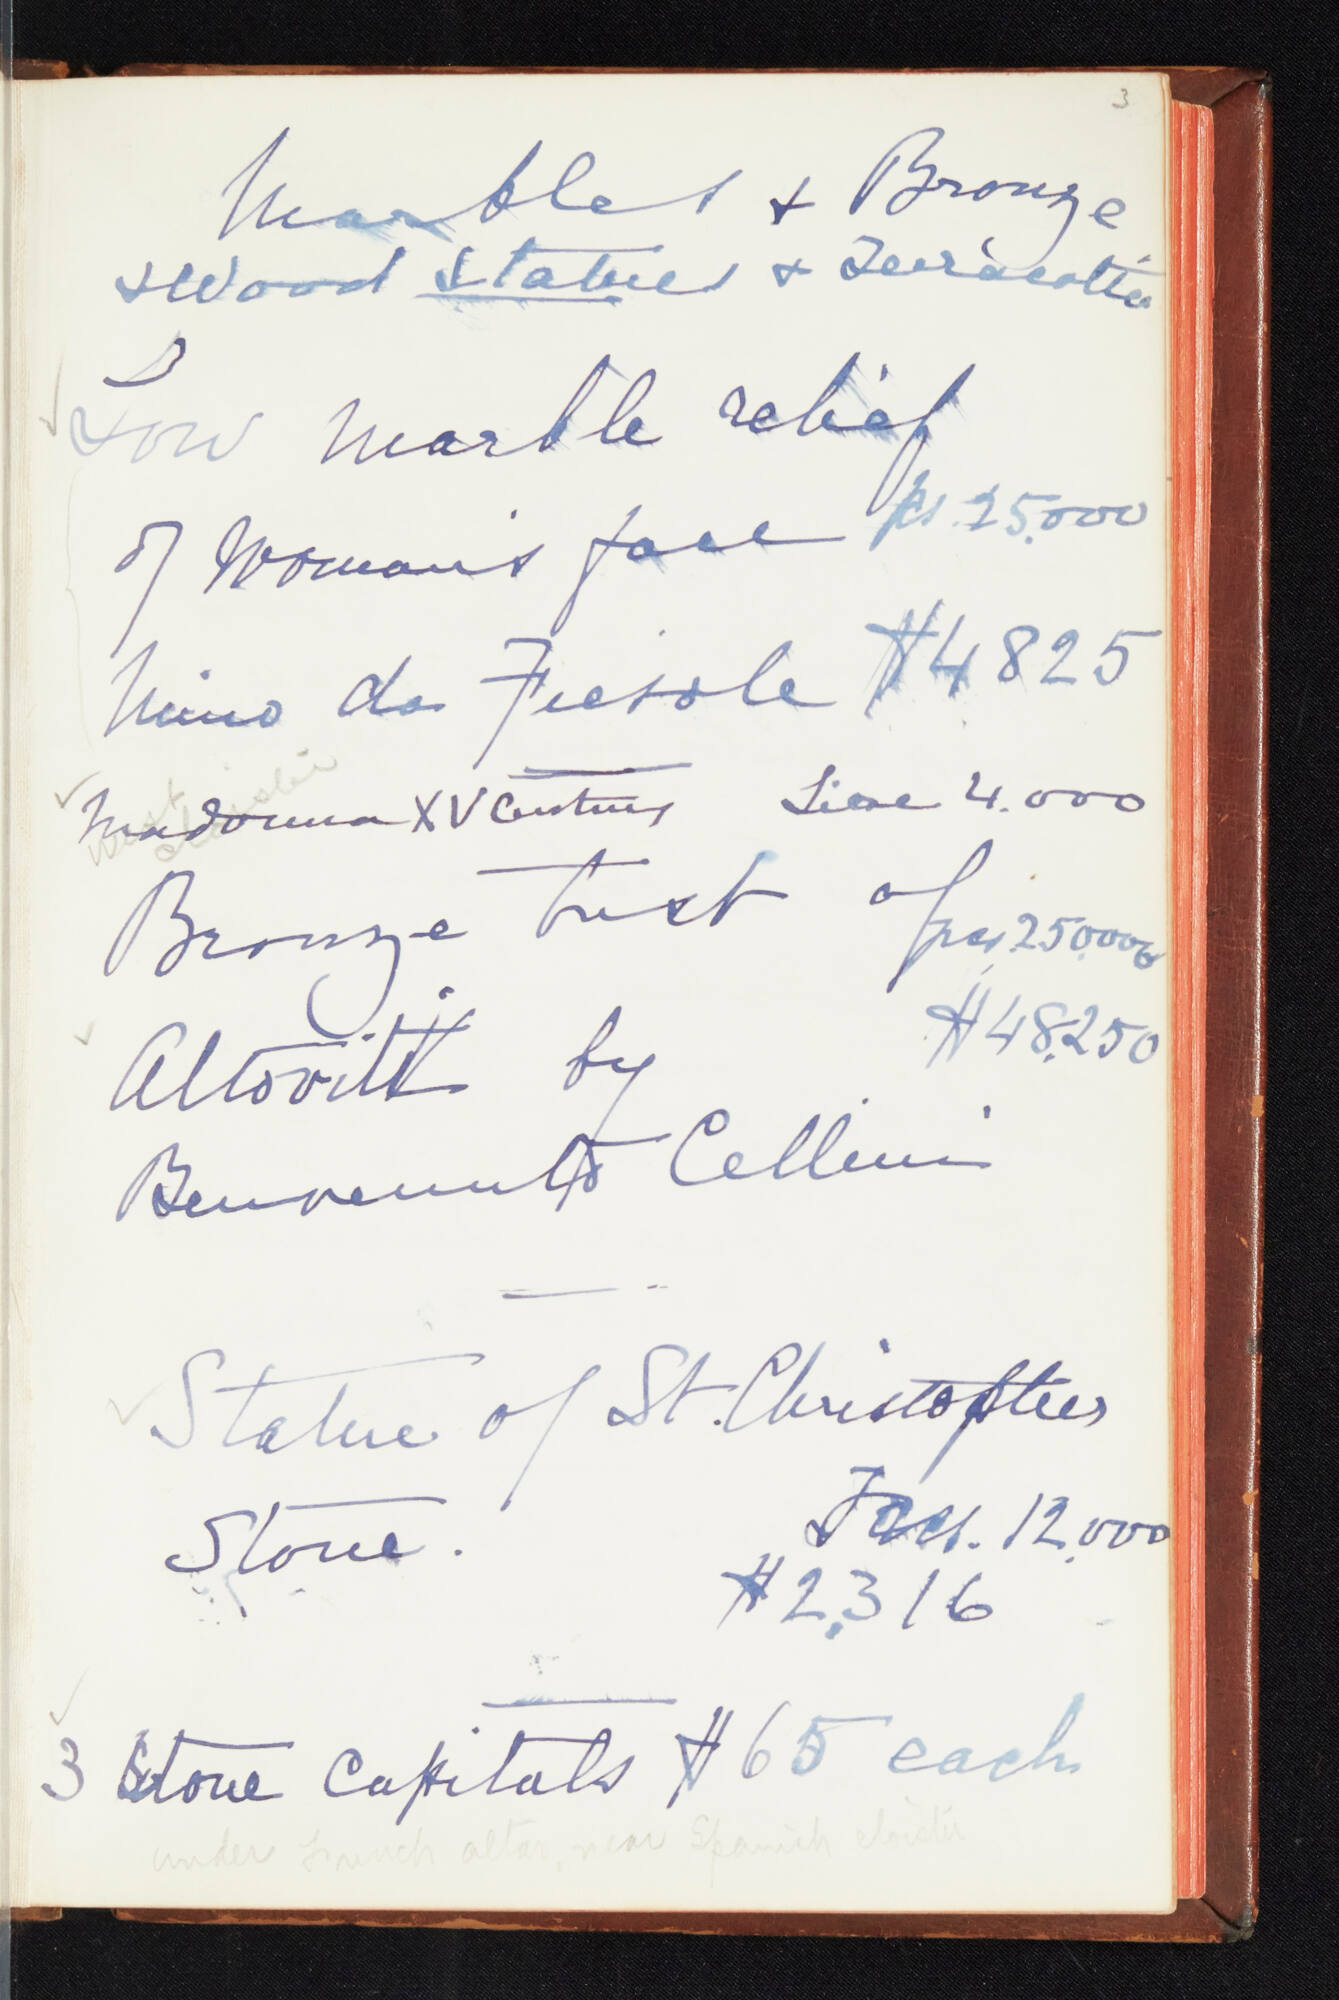 3
Marbles & Bronze
& Wood Statues & Terracotta
Low Marble relief
of Woman's face fcs. 25,000
Mino da Fiesole $4825
West cloister
Madonna XV Century Lire 4.000
Bronze bust of fcs. 250,000
Altoviti by $48,250
Benvenuto Cellini
Statue of St. Christopher
Stone. Fcs. 12,000
$2,316
3 Stone Capitals $65 each
under French altar, near Spanish cloister